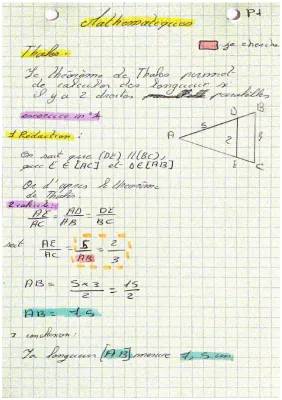 Mathématiques
P1
: je cherche
Thales.
Le théorème de Thales permet
de calculer des longueur si
il y a 2 droites parallèles
exercice n°1
1 Rédaction :
On sait que (DE) // (BC),
que E ∈ [AC] et D ∈ [AB]
Or d'après le théorème
de Thales
2 calcul :
AE/AC = AD/AB = DE/BC
soit AE/AC = 5/AB = 2/3
AB = 5×3/2 = 15/2
AB = 7,5
conclusion :
La longueur [AB] mesure 7,5 cm
A
5
D
B
2
E
C